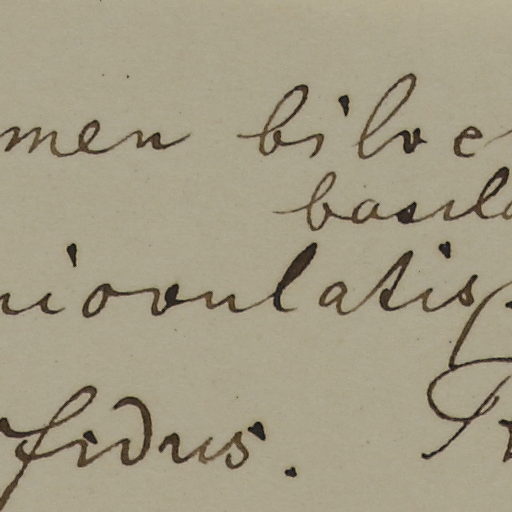 men biloc
basila
niovulatis,
fidus. Fr